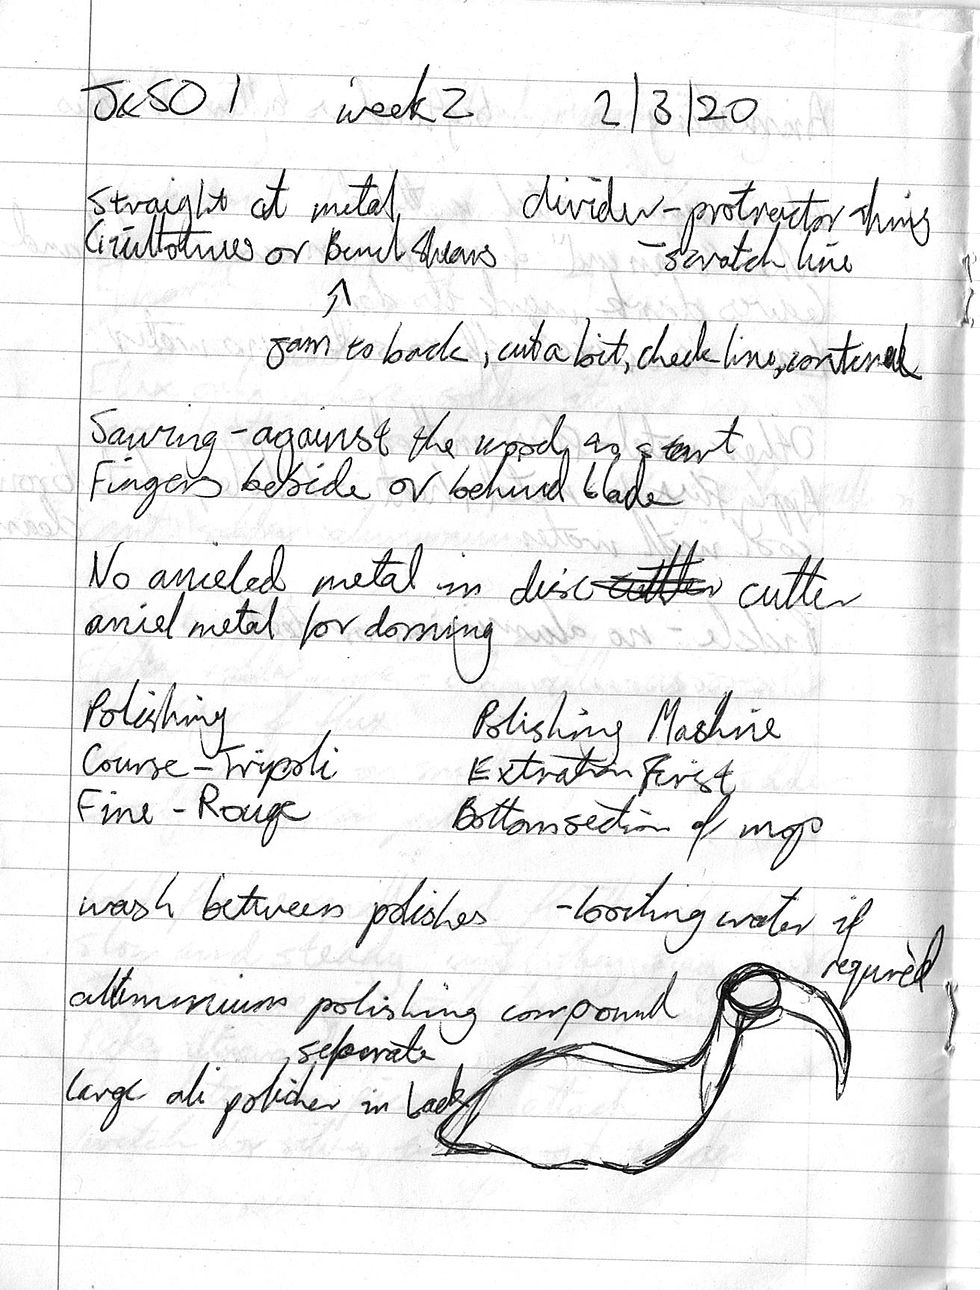 J&SO 1 week 2 2/3/20
Straight cut metal, divider - protractor thing
or Bench Shears - scratch line
jam to back, cut a bit, check line, continue
Sawing - against the wood, as start
Fingers beside or behind blade
No anieled metal in disc cutter cutter
aniel metal for doming
Polishing Polishing Machine
Course - Tripoli Extration First
Fine - Rouge Bottom section of mop
wash between polishes - boiling water if
required
alluminium polishing compound
seperate
large ali polisher in back